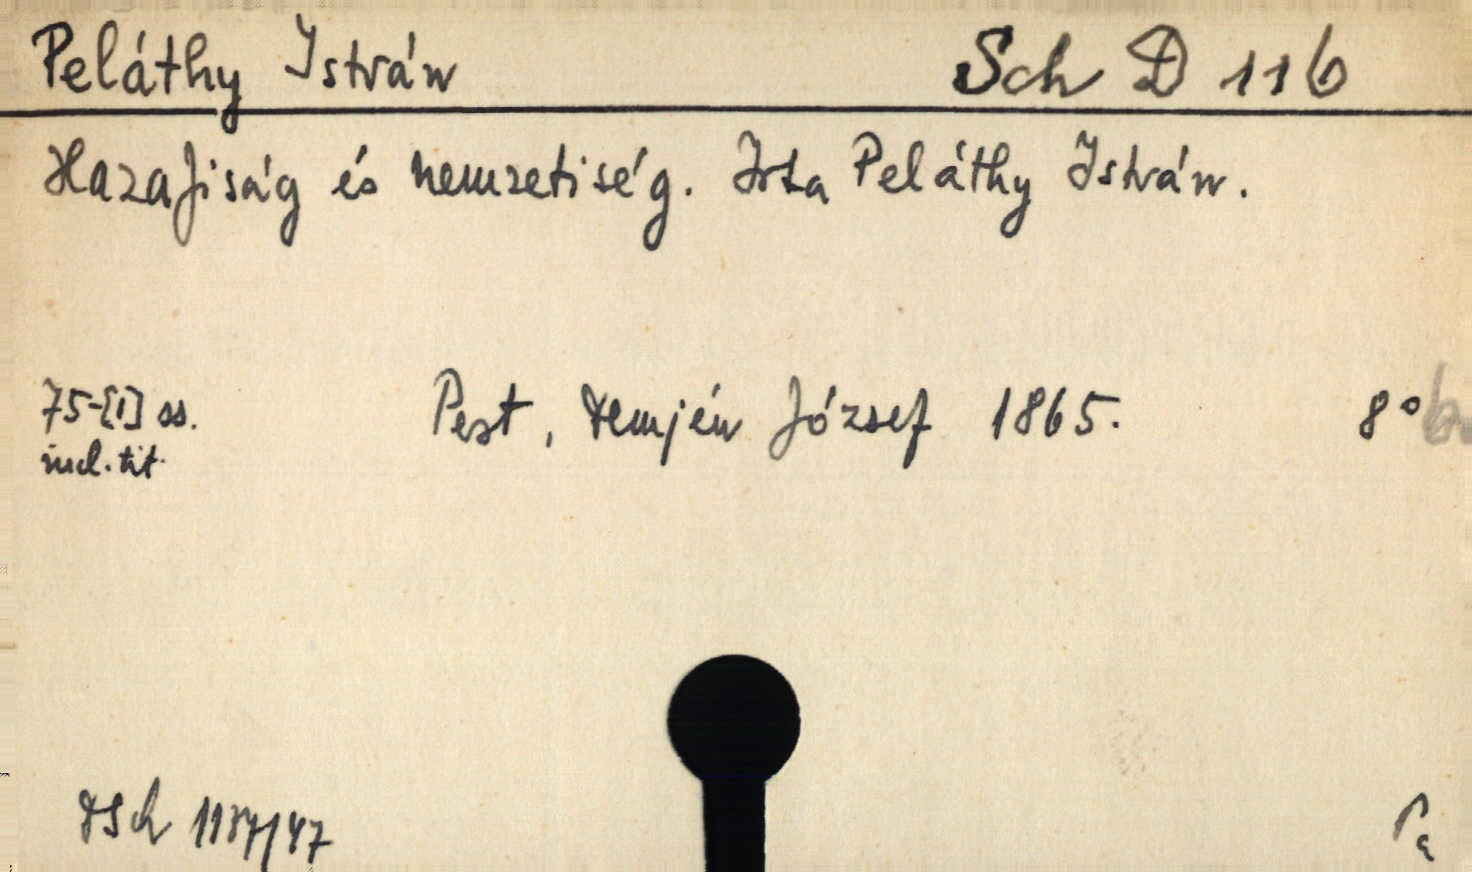 Peláthy István Sch D 116
Hazafiság és nemzetiség. Irta Peláthy István.
75-[1] ss. Pest, Demjén József 1865. 8°
incl. tit.
DSch 1137/47